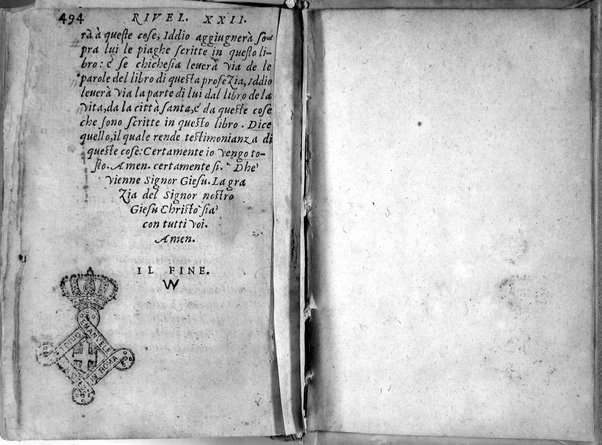 494 RIVEL. XXII.
rà à queste cose, Iddio aggiugnerà so-
pra lui le piaghe scritte in questo li-
bro: e se chichesia leuerà via de le
parole del libro di questa profezia, Iddio
leuerà via la parte di lui dal libro de la
vita, da la città santa, e da queste cose
che sono scritte in questo libro. Dice
quello, il quale rende testimonianza di
queste cose: Certamente io vengo to-
sto. Amen. certamente sì. Dhe
vienne Signor Giesu. La gra
zia del Signor nostro
Giesu Christo sia
con tutti voi.
Amen.
IL FINE.
W
EMANVELE
IN ROMA